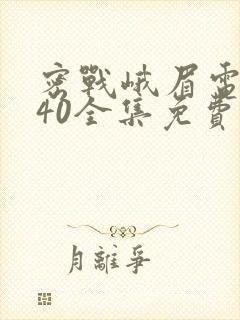 密戰峨眉電
40全集免費
月離爭